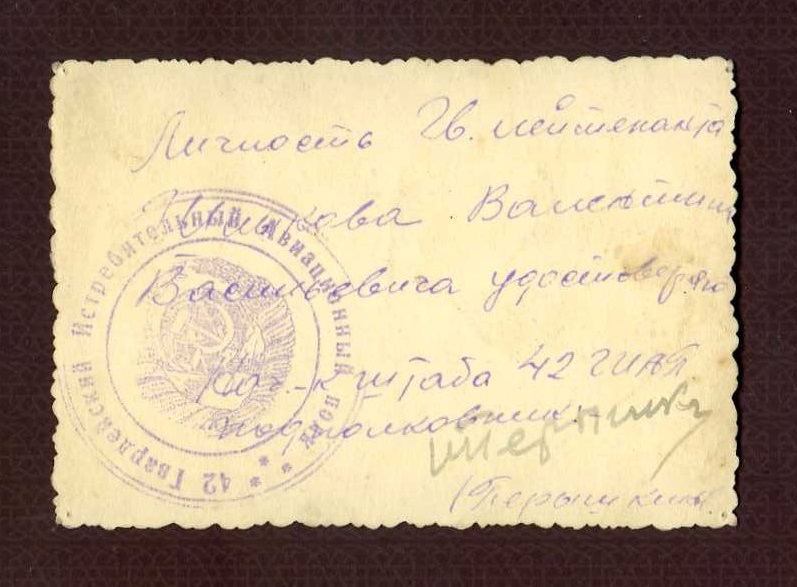 Личность Гв. лейтенанта
Валентина
Васильевича удостоверяю
Нач-к штаба 42 ГИАП
подполковник
(Перышкин)
42 Гвардейский Истребительный Авиационный полк